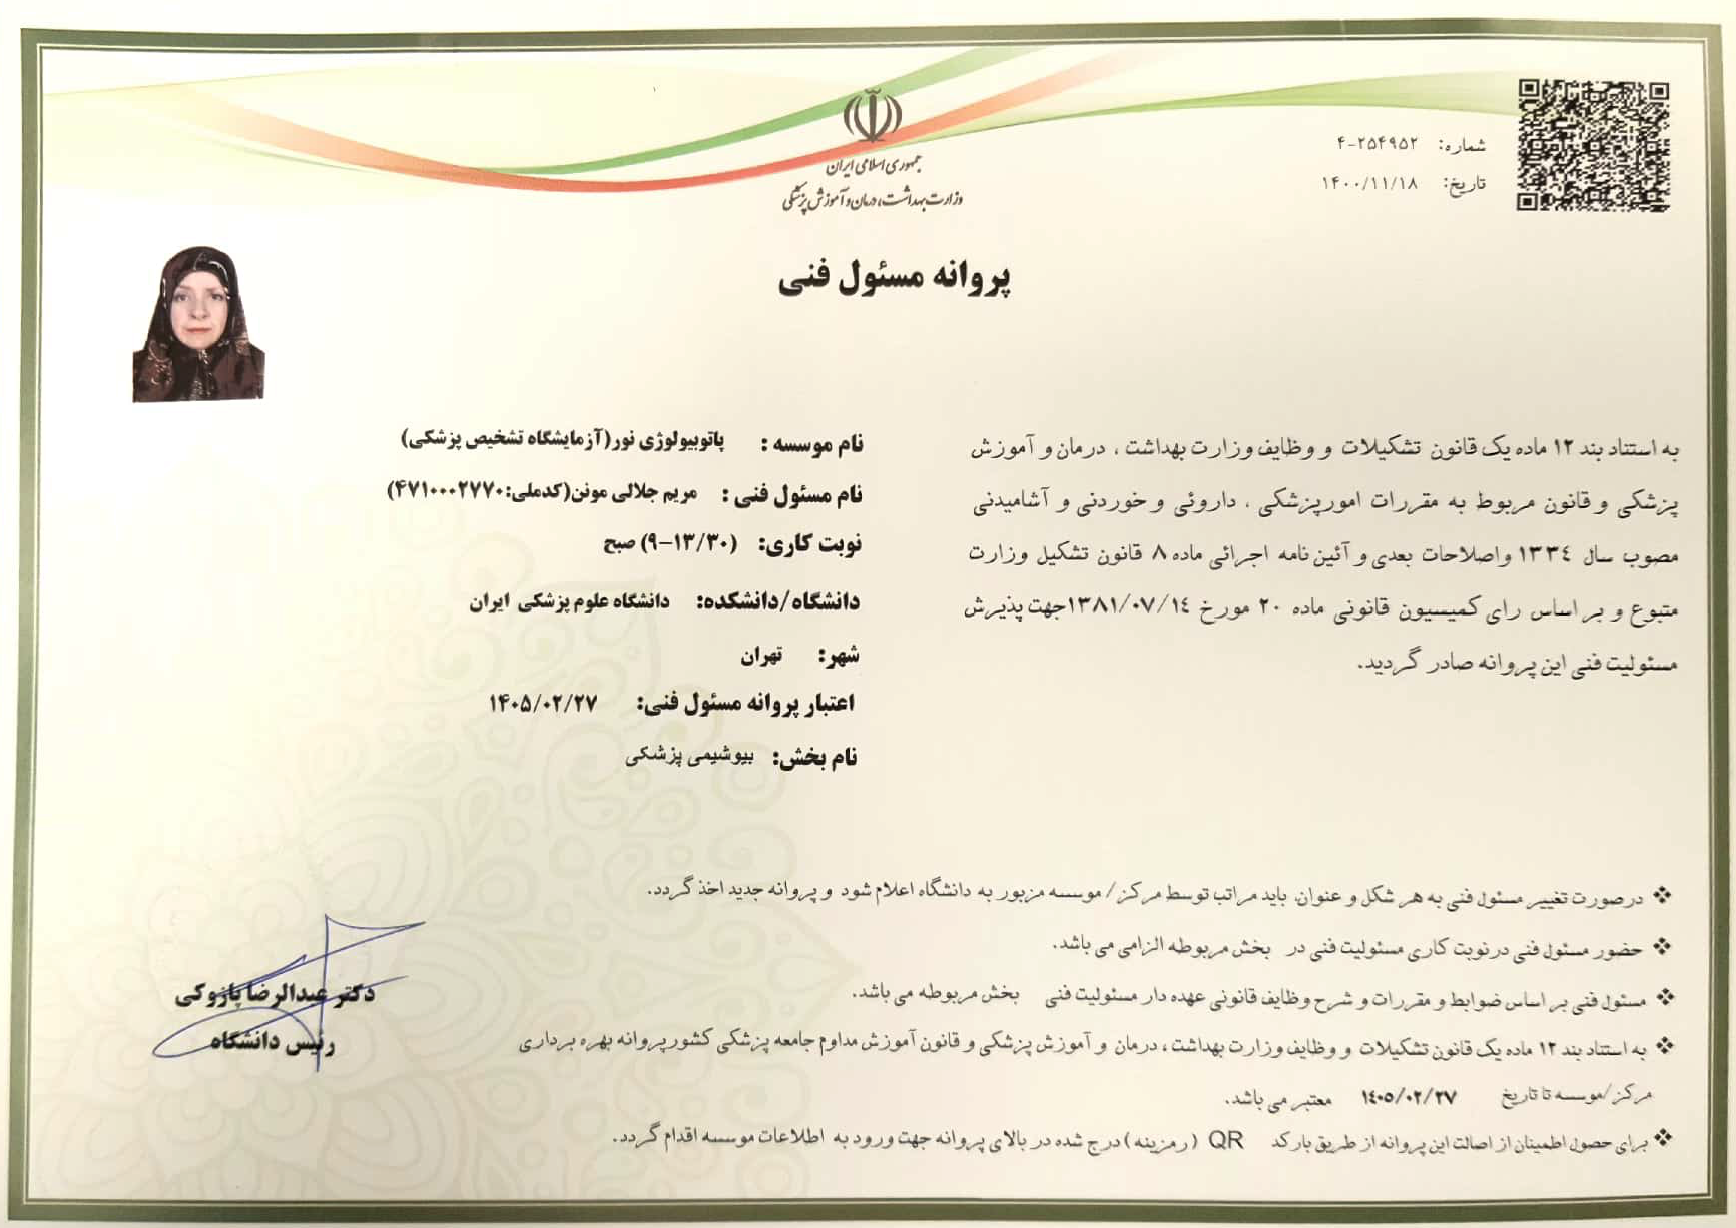 جمهوری اسلامی ایران
وزارت بهداشت، درمان و آموزش پزشکی
شماره: ۴-۲۵۴۹۵۲
تاریخ: ۱۴۰۰/۱۱/۱۸
پروانه مسئول فنی
به استناد بند ۱۲ ماده یک قانون تشکیلات و وظایف وزارت بهداشت ، درمان و آموزش
پزشکی و قانون مربوط به مقررات امورپزشکی ، داروئی و خوردنی و آشامیدنی
مصوب سال ۱۳۳٤ واصلاحات بعدی و آئین نامه اجرائی ماده ۸ قانون تشکیل وزارت
متبوع و بر اساس رای کمیسیون قانونی ماده ۲۰ مورخ ۱۳۸۱/۰۷/۱٤جهت پذیرش
مسئولیت فنی این پروانه صادر گردید.
نام موسسه : پاتوبیولوژی نور(آزمایشگاه تشخیص پزشکی)
نام مسئول فنی : مریم جلالی موتن(کدملی:۴۷۱۰۰۰۲۷۷۰)
نوبت کاری: (۹-۱۳/۳۰) صبح
دانشگاه/دانشکده: دانشگاه علوم پزشکی ایران
شهر: تهران
اعتبار پروانه مسئول فنی: ۱۴۰۵/۰۲/۲۷
نام بخش: بیوشیمی پزشکی
❖ درصورت تغییر مسئول فنی به هر شکل و عنوان، باید مراتب توسط مرکز/ موسسه مزبور به دانشگاه اعلام شود و پروانه جدید اخذ گردد.
❖ حضور مسئول فنی درنوبت کاری مسئولیت فنی در بخش مربوطه الزامی می باشد.
❖ مسئول فنی بر اساس ضوابط و مقررات و شرح وظایف قانونی عهده دار مسئولیت فنی بخش مربوطه می باشد.
❖ به استناد بند ۱۲ ماده یک قانون تشکیلات و وظایف وزارت بهداشت، درمان و آموزش پزشکی و قانون آموزش مداوم جامعه پزشکی کشورپروانه بهره برداری
مرکز/موسسه تا تاریخ ۱٤۰۵/۰۲/۲۷ معتبر می باشد.
❖ برای حصول اطمینان از اصالت این پروانه از طریق بارکد QR (رمزینه) درج شده در بالای پروانه جهت ورود به اطلاعات موسسه اقدام گردد.
دکتر عبدالرضا پازوکی
رئیس دانشگاه